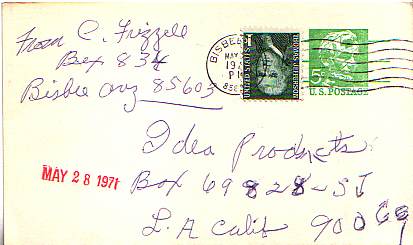 From C. Frizzell
Box 834
Bisbee Ariz 85603
BISBEE
MAY
PM
UNITED STATES
THOMAS JEFFERSON
1¢
5¢
U.S. POSTAGE
MAY 28 1971
Idea Products
Box 69828-SJ
L.A Calif 90069